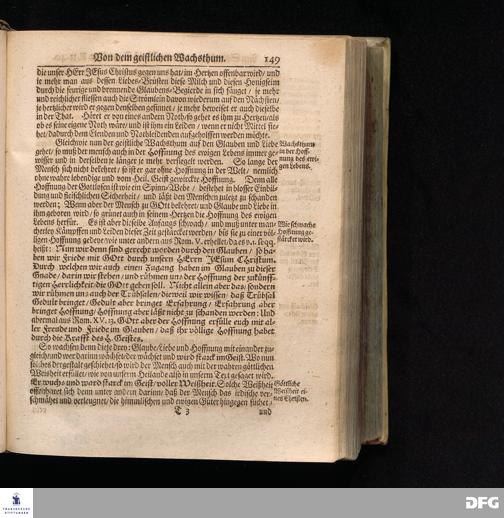 Von dem geistlichen Wachsthum. 149
die unser HErr JEsus Christus gegen uns hat/ im Hertzen offenbar wird/ und
je mehr man aus dessen Liebes-Brüsten diese Milch und diesen Honigseim
durch die feurige und brennende Glaubens-Begierde in sich sänget/ je mehr
und reichlicher fliessen auch die Strömlein davon wiederum auf den Nächsten/
je hertzlicher wird er gegen denselben gesinnet/ je mehr beweiset er auch dieselbe
in der That. Höret er von eines andern Noth/ so gehet es ihm zu Hertzen/ als
ob es seine eigene Noth wäre/ und ist ihm ein Leiden/ wenn er nicht Mittel sie-
het/ dadurch dem Elenden und Nothleidenden aufgeholffen werden möchte.
Gleichwie nun der geistliche Wachsthum auf den Glauben und Liebe
gehet/ so muß der mensch auch in der Hoffnung des ewigen Lebens immer ge-
wisser und in derselben je länger je mehr versiegelt werden. So lange der
Mensch sich nicht bekehret/ so ist er gar ohne Hoffnung in der Welt/ nemlich
ohne wahre lebendige und vom Heil. Geist gewirckte Hoffnung. Denn alle
Hoffnung der Gottlosen ist wie ein Spinn-Webe/ bestehet in blosser Einbil-
dung und fleischlichen Sicherheit/ und läst den Menschen zuletzt zu schanden
werden; Wenn aber der Mensch zu GOtt bekehret/ und Glaube und Liebe in
ihm geboren wird/ so grünet auch in seinem Hertzen die Hoffnung des ewigen
Lebens herfür. Es ist aber dieselbe Anfangs schwach/ und muß unter man-
cherley Kämpffen und Leiden dieser Zeit gestärcket werden/ bis sie zu einer völ-
ligen Hoffnung gedeye; wie unter andern aus Rom. V. erhellet/ da es v.1. seqq.
heißt: Nun wir denn sind gerecht worden durch den Glauben/ so ha-
ben wir Friede mit GOtt durch unsern HErrn JEsum Christum.
Durch welchen wir auch einen Zugang haben im Glauben zu dieser
Gnade/ darin wir stehen/ und rühmen uns der Hoffnung der zukünff-
tigen Herrlichkeit/ die GOtt geben soll. Nicht allein aber das/ sondern
wir rühmen uns auch der Trübsalen/ dieweil wir wissen/ daß Trübsal
Gedult bringet/ Gedult aber bringet Erfahrung/ Erfahrung aber
bringet Hoffnung/ Hoffnung aber läst nicht zu schanden werden: Und
abermal aus Rom. XV. 13. GOtt aber der Hoffnung erfülle euch mit al-
ler Freude und Friede im Glauben/ daß ihr völlige Hoffnung habet
durch die Krafft des H. Geistes.
So wachsen denn diese drey: Glaube/ Liebe und Hoffnung mit einander zu-
gleich/ und wer darinn wächset/ der wächset und wird starck im Geist. Wo nun
solches dergestalt geschiehet/ so wird der Mensch auch mit der wahren göttlichen
Weisheit erfüllet/ wie von unserm Heilande also in unserm Text gesaget wird.
Er wuchs und ward starck im Geist/ voller Weißheit. Solche Weißheit
offenbaret sich denn unter andern darinn/ daß der Mensch das irdische ver-
schmähet und verleugnet/ die himmlischen und ewigen Güter hingegen suchet/
T 3 und
Wachsthum
in der Hoff-
nung des ewi-
gen Lebens.
Wie schwache
Hoffnung ge-
stärcket wird.
Göttliche
Weißheit ei-
nes Christen.
FRANCKESCHE
STIFTUNGEN
DFG